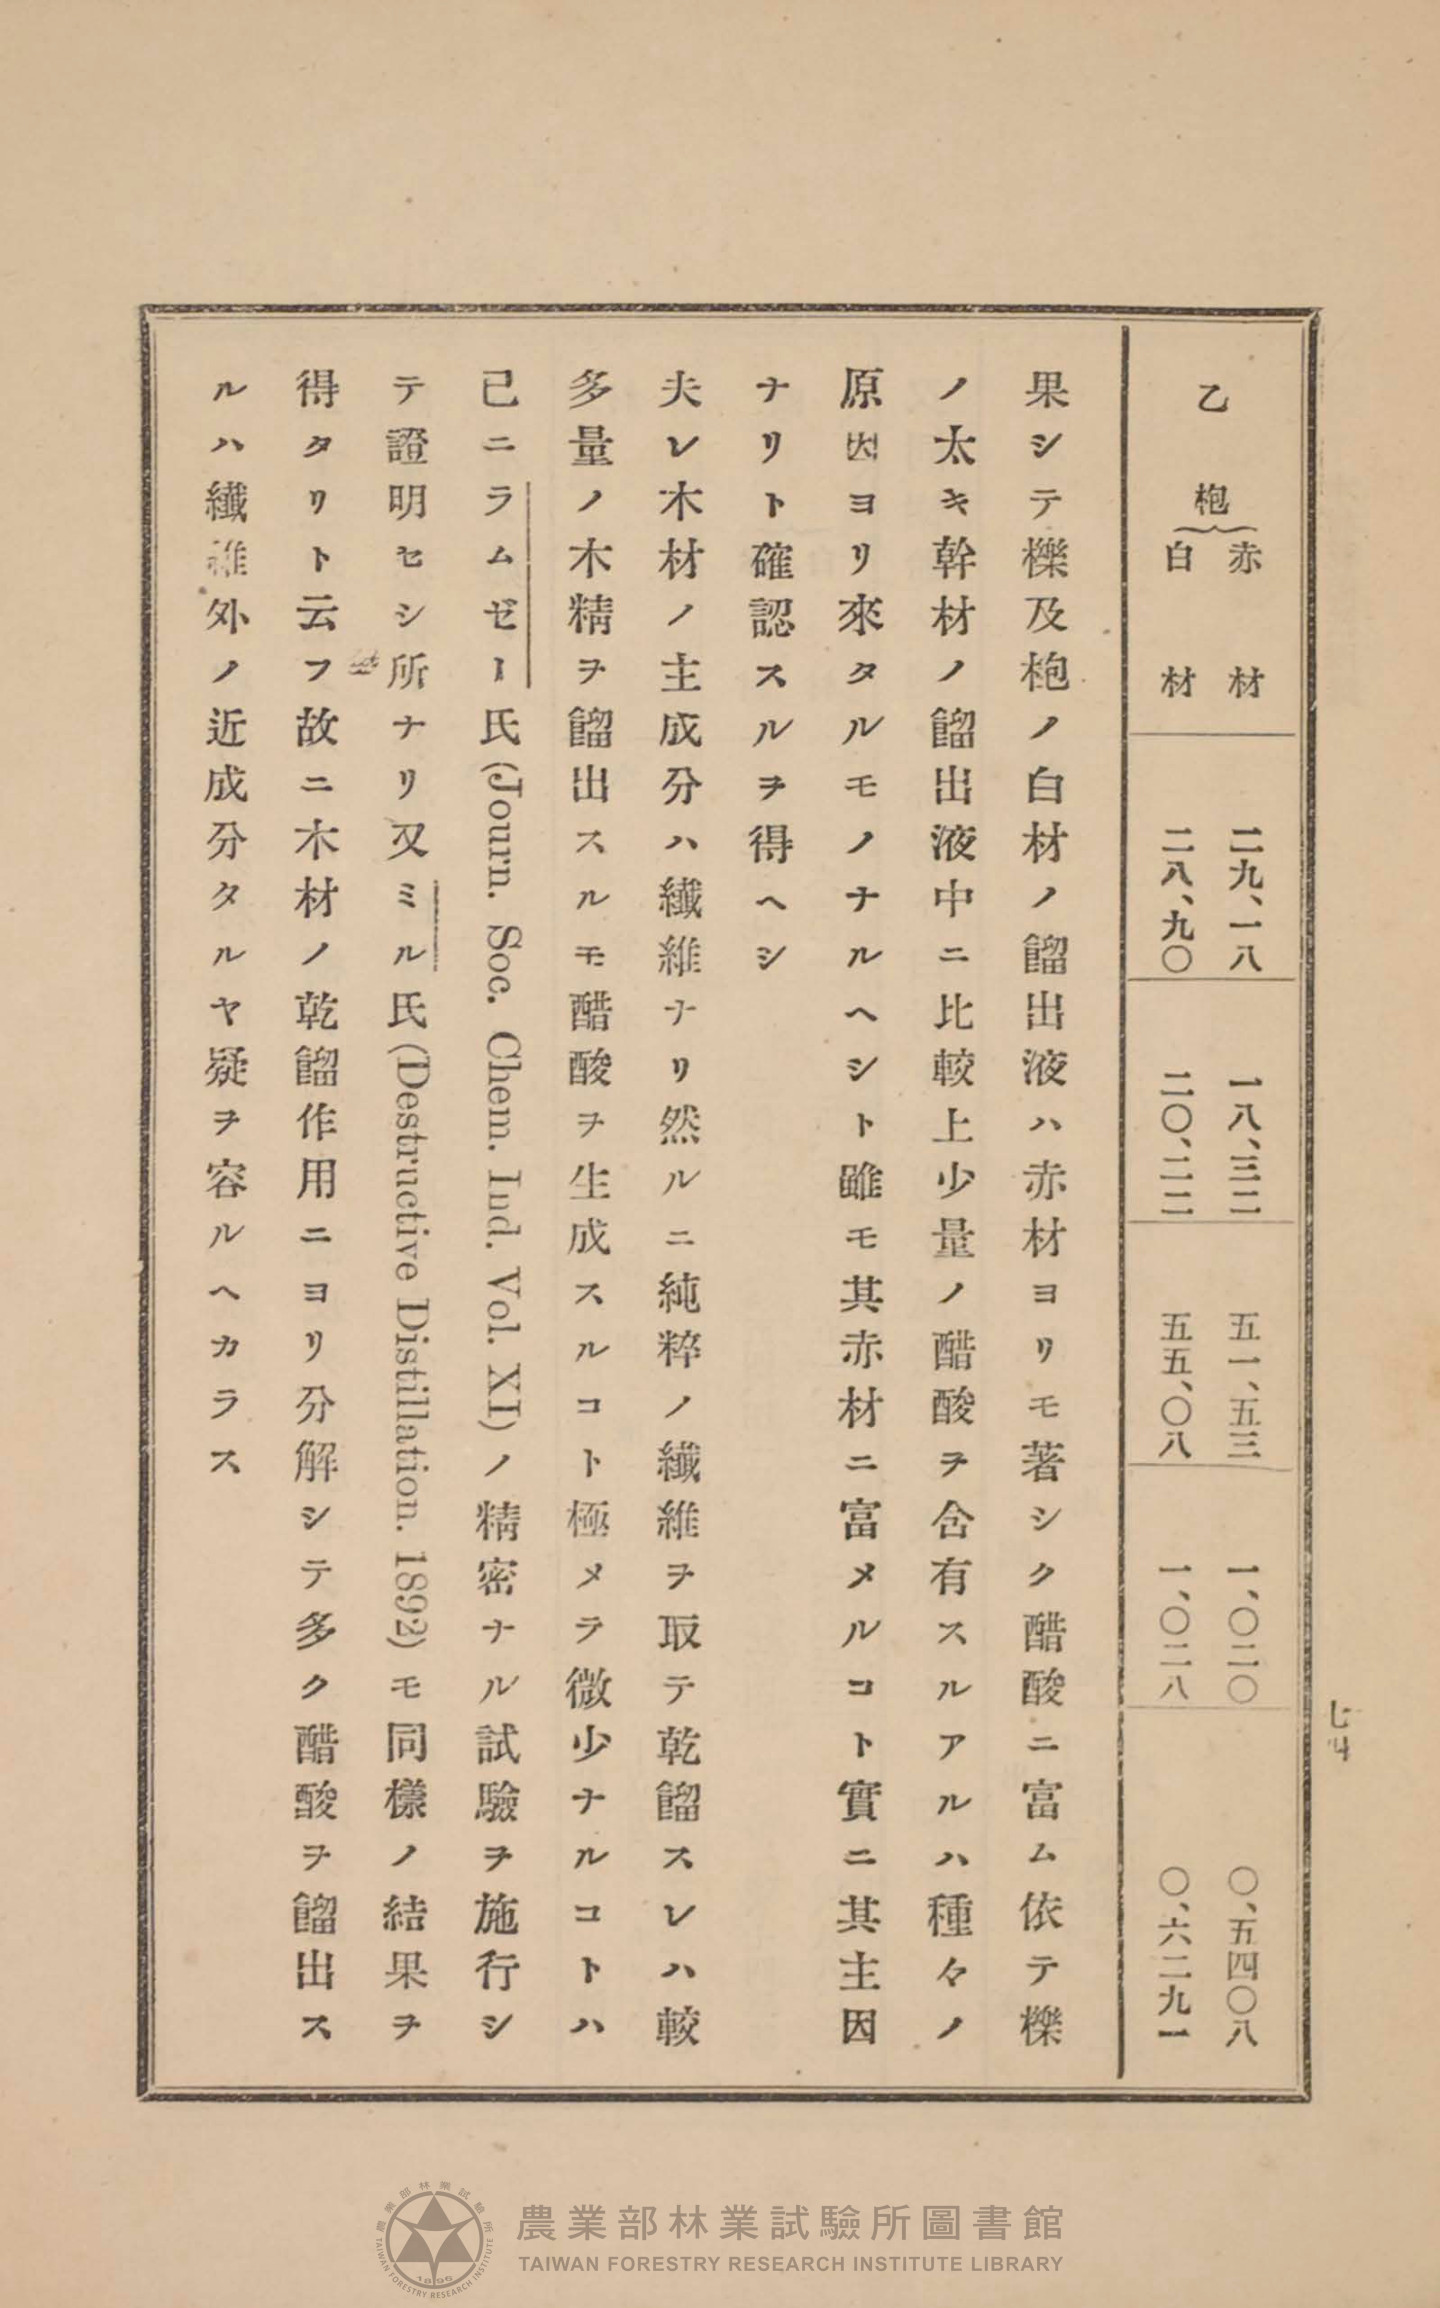 七四
乙 枹 赤材 二九、一八 一八、三二 五一、五三 一、〇二〇 〇、五四〇八
白材 二八、九〇 二〇、二二 五五、〇八 一、〇二八 〇、六二九一
果シテ櫟及枹ノ白材ノ餾出液ハ赤材ヨリモ著シク醋酸ニ富ム依テ櫟
ノ太キ幹材ノ餾出液中ニ比較上少量ノ醋酸ヲ含有スルアルハ種々ノ
原因ヨリ來タルモノナルヘシト雖モ其赤材ニ富メルコト實ニ其主因
ナリト確認スルヲ得ヘシ
夫レ木材ノ主成分ハ纎維ナリ然ルニ純粹ノ纎維ヲ取テ乾餾スレハ較
多量ノ木精ヲ餾出スルモ醋酸ヲ生成スルコト極メテ微少ナルコトハ
已ニラムゼー氏(Journ. Soc. Chem. Ind. Vol. XI)ノ精密ナル試驗ヲ施行シ
テ證明セシ所ナリ又ミル氏(Destructive Distillation. 1892)モ同樣ノ結果ヲ
得タリト云フ故ニ木材ノ乾餾作用ニヨリ分解シテ多ク醋酸ヲ餾出ス
ルハ纎維外ノ近成分タルヤ疑ヲ容ルヘカラス
農業部林業試驗所圖書館
TAIWAN FORESTRY RESEARCH INSTITUTE LIBRARY
農業部林業試驗所
TAIWAN FORESTRY RESEARCH INSTITUTE
1896